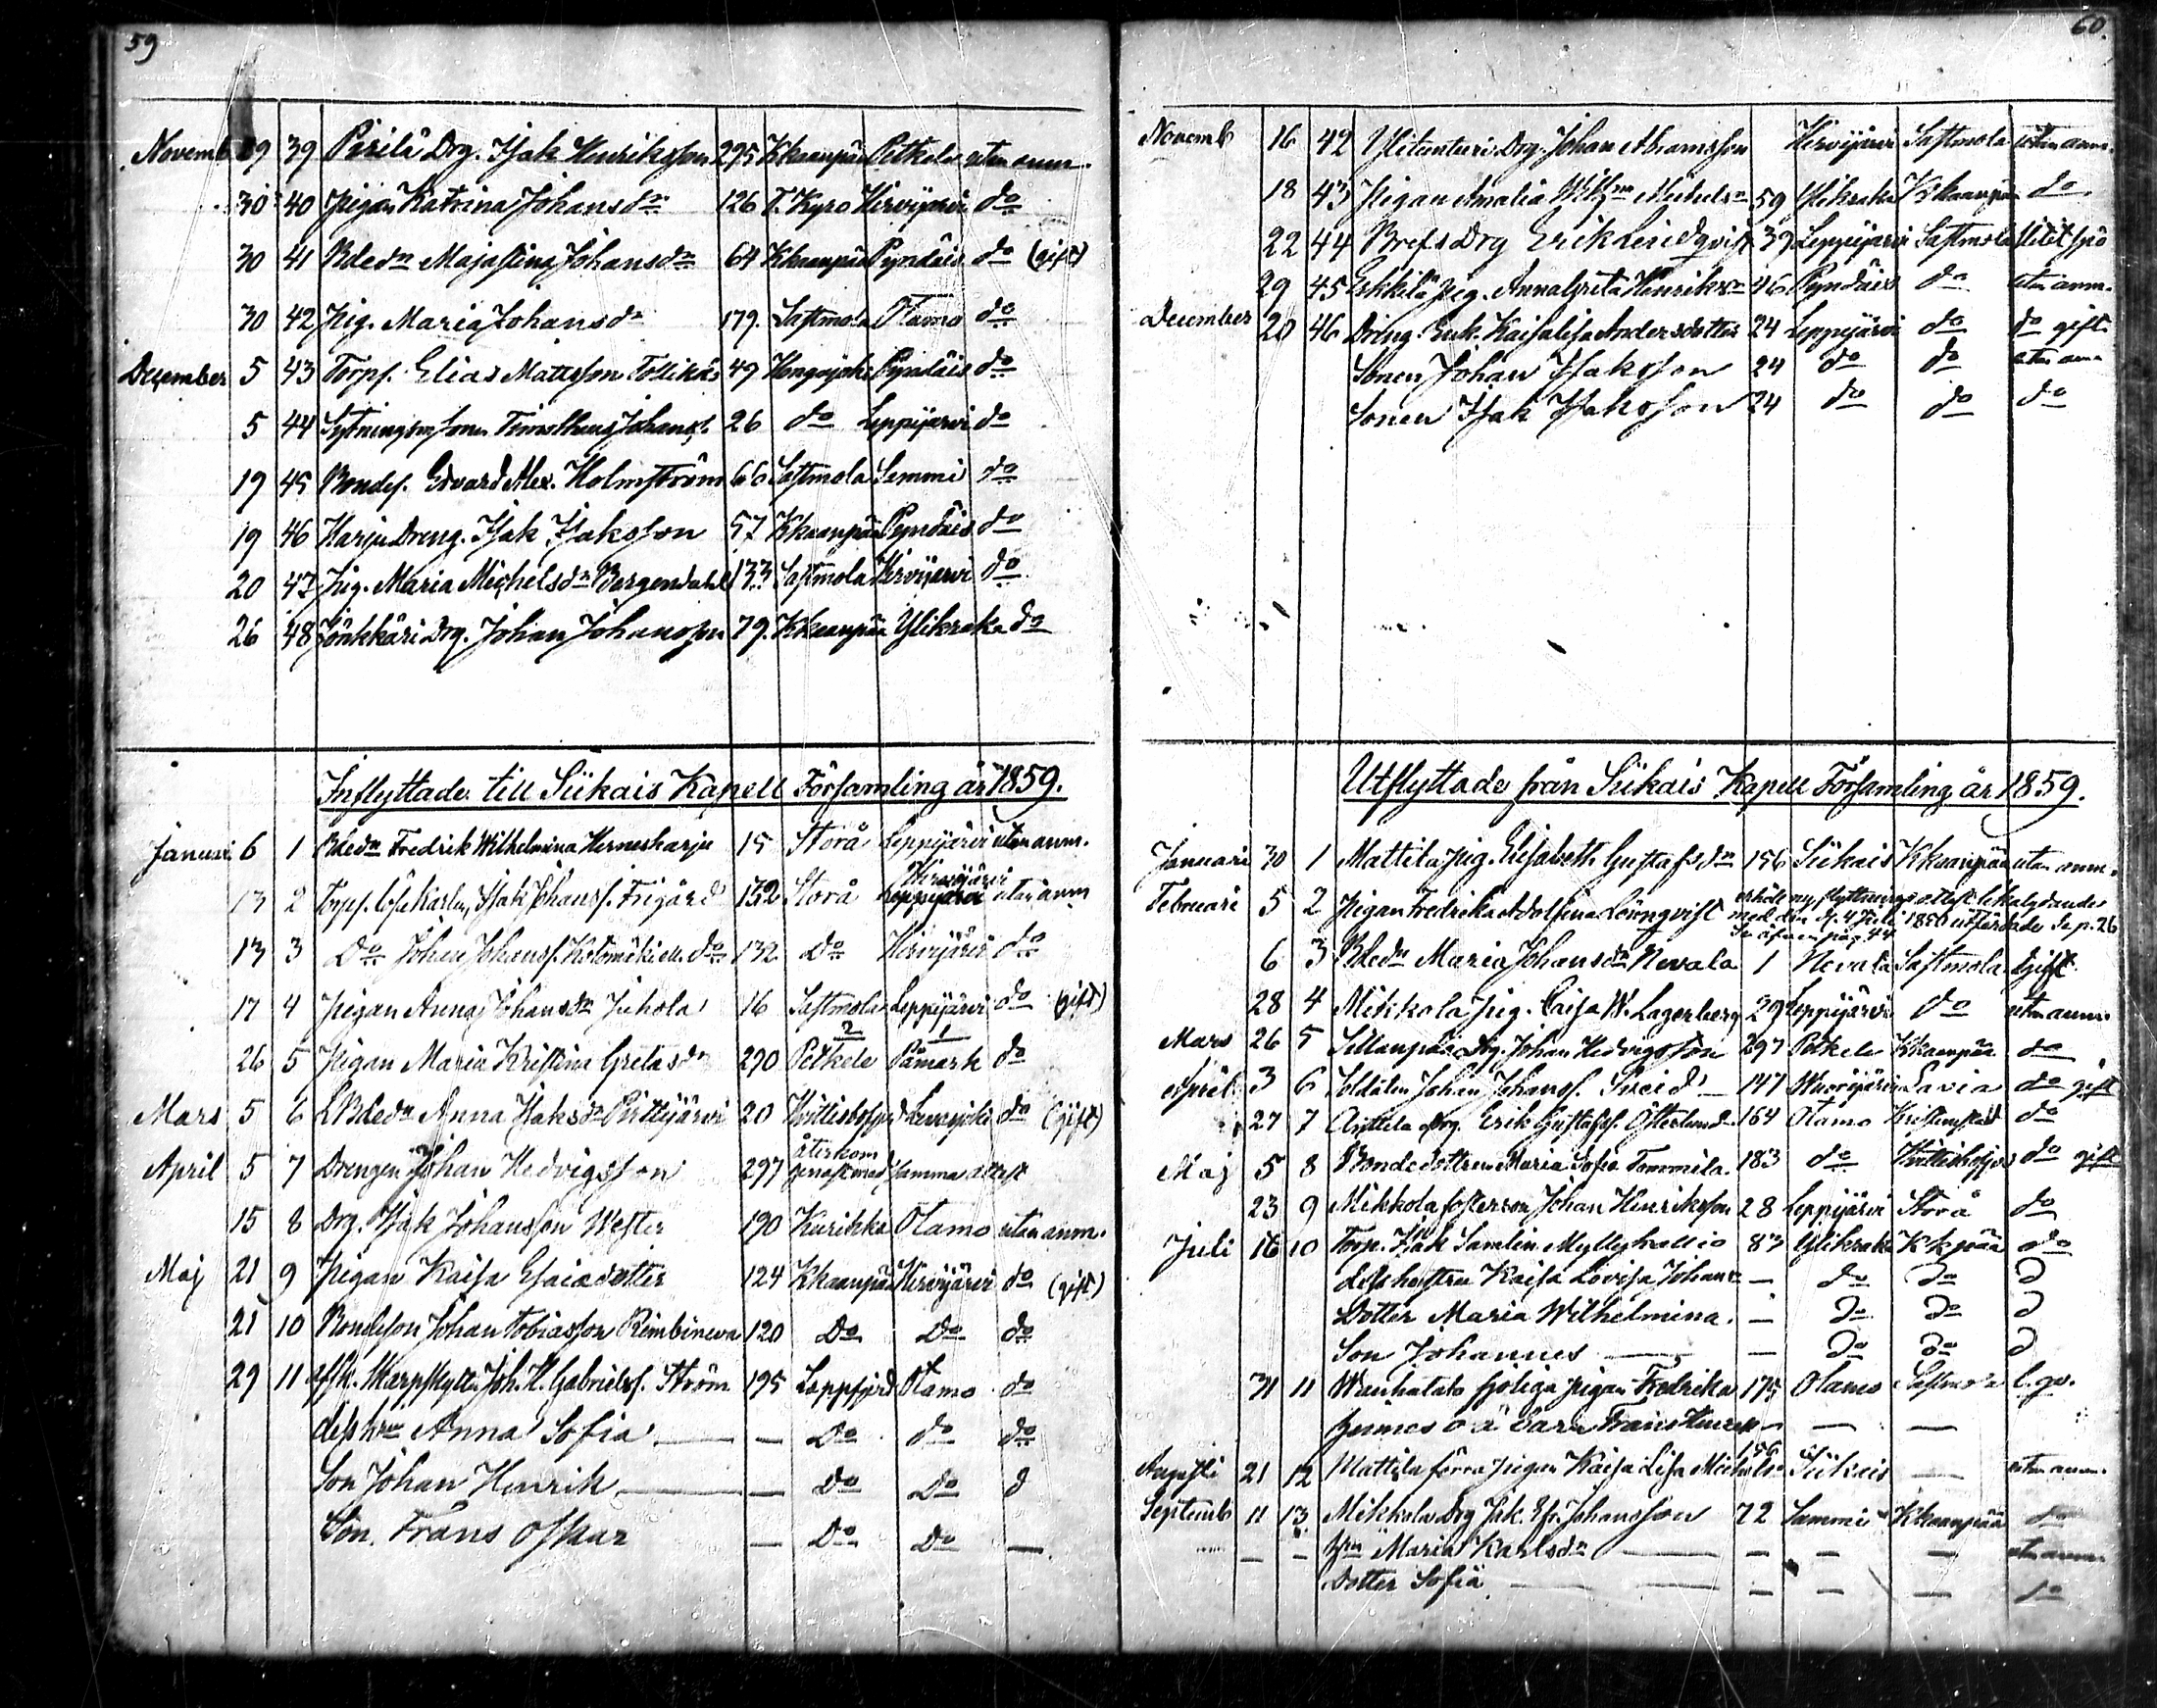 59
Novemb 29 39 Pirilä Drg. Isak Henriksson 295 Kkaanpää Petkele utan anm.
30 40 Pigan Katrina Johansdr 126 T. Kyro Hirvijärvi do
30 41 Bdedr Majastina Johansdr 64 Kkaanpää Pyndäis do (gift)
30 42 Pig. Maria Johansdr 179. Sastmola Otamo do
December 5 43 Torps. Elias Mattsson 49 Hongojoki Pyndäis do
5 44 Sytningsm sonen Timotheus Johans. 26 do Leppijärvi do
19 45 Bondes. Edvard Alex. Holmström 66 Sastmola Sammi do
19 46 Harju Dreng. Isak Isaksson 57 Kkaanpää Pyndäis do
20 47 Pig. Maria Michelsdr Bergendahl 133 Sastmola Hirvijärvi do
26 48 Jönkkäri Drg. Johan Johansson 79. Kkaanpää Ylikraka do
Inflyttade till Siikais Kapell Församling år 1859.
Januari 6 1 Bdedr Fredrik Wilhelmina Herneskarju 15 Storå Leppijärvi utan anm.
Hirvijärvi
13 2 Torps. Isak Johanss. Frigård 132 Storå Leppijärvi utan anm
13 3 Do Johan Johanss. Kolomäki do 132 Do Hirvijärvi do
17 4 Pigan Anna Johansdr Juhola 16 Sastmola Leppijärvi do (gift)
2 1
26 5 Pigan Maria Kristina Gretasdr 290 Petkele Påmark do
Mars 5 6 Bdedr Anna Isaksdr Pirttijärvi 20 Hvittisbofjerd Leppijärvi do (gift)
återkom
April 5 7 Drengen Johan Hedvigsson 297 genast med samma attest
15 8 Drg. Isak Johansson Wester 190 Kurikka Otamo utan anm.
Maj 21 9 Pigan Kaisa Esaiedotter 124 Kkaanpää Hirvijärvi do (gift)
21 10 Bondeson Johan Tobiasson Rimbineva 120 Do Do do
29 11 afsk. Skarpskytten Joh. H. Gabrielss. Ström 195 Lappfjerd Otamo do
dess hru Anna Sofia — — Do do do
Son Johan Henrik — — Do Do d
Son. Frans Oskar — Do Do —
60.
Novemb 16 42 Ylitunturi Drg. Johan Abramsson Hirvijärvi Sastmola utan anm.
18 43 Pigan Amalia Michelsdr 59 Ylikraka Kkaanpää do
22 44 Brefs Drg Erik Lindqvist 39 Leppijärvi Sastmola
29 45 Eskkilä Pig. Annagreta Henriksdr 46 Pyndäis do utan anm.
December 20 46 Dräng. Enk. Kaisalisa Andersdotter 24 Leppijärvi do do gift.
Sonen Johan Isaksson 24 do do utan anm
Sonen Isak Isaksson 24 do do do
Utflyttade från Siikais Kapell Församling år 1859.
Januari 30 1 Mattila Pig. Elisabeth Gustafsdr 156 Siikais Kkaanpää utan anm.
Februari 5 2 Pigan Fredrika Adolfina Lönnqvist erhöll ny flyttnings attest likalydande
med den d. 4 Juli 1850 utfärdade Se p. 26
6 3 Bdedr Maria Johansdr Nevala 1 Nevala Sastmola gift
28 4 Mikkola Pig. Caisa W. Lagerberg 29 Leppijärvi do utan anm.
Mars 26 5 Sillanpää Drg. Johan Hedvigsson 297 Petkele Kkaanpää do
April 3 6 Soldaten Johan Johanss. Sneid — 147 Wuorijärvi Lavia do gift
27 7 Anttila Drg Erik Gustafss. Österlund 164 Otamo Kristinestad do
Maj 5 8 Bondedottren Maria Sofia Tommila 183 do Hvittisbofjerd do gift
23 9 Mikkola fosterson Johan Henriksson 28 Leppijärvi Storå do
Juli 16 10 Torp. Isak Samlin Myllykallio 83 Ylikraka Kkpää do
dess hustru Kaisa Lovisa Johans — do do d
Dotter Maria Wilhelmina. — do do d
Son Johannes — — do do d
31 11 Wanhatalo Pigan Fredrika 175 Otamo Sastmola
Frans Henrik — — —
156
Augusti 21 12 Mattila förra Pigan Kaisa Lisa Michelsdr Siikais — utan anm.
Septemb 11 13 Mikkola Drg Isak. Efr. Johansson 72 Sammi Kkaanpää do
— — Hru Maria Karlsdr — — — — utan anm
Dotter Sofia — — — — — do